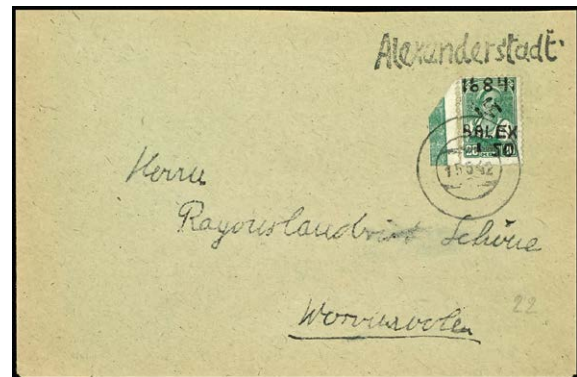 Alexanderstadt
16.8.41
B.ALEX
1.50
15 6 42
Herrn
Rayonslandwirt Schöne
22